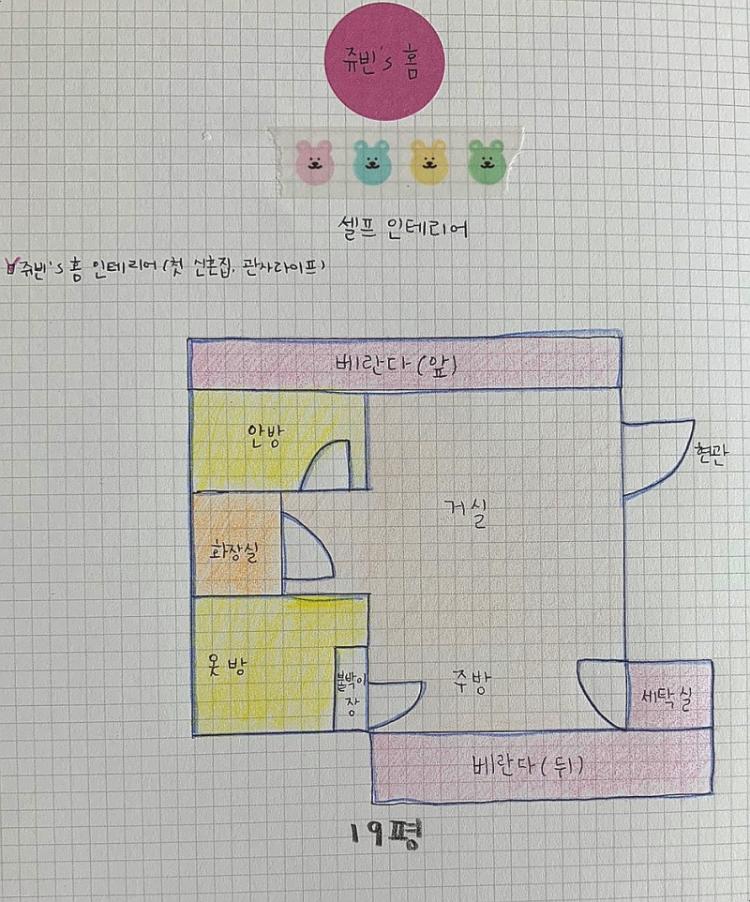 쥬빈's 홈
셀프 인테리어
쥬빈's 홈 인테리어 (첫 신혼집. 관사라이프)
베란다(앞)
안방
현관
거실
화장실
옷방
붙박이
장
주방
세탁실
베란다(뒤)
19평